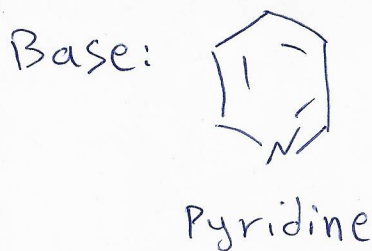 Base:
N
Pyridine